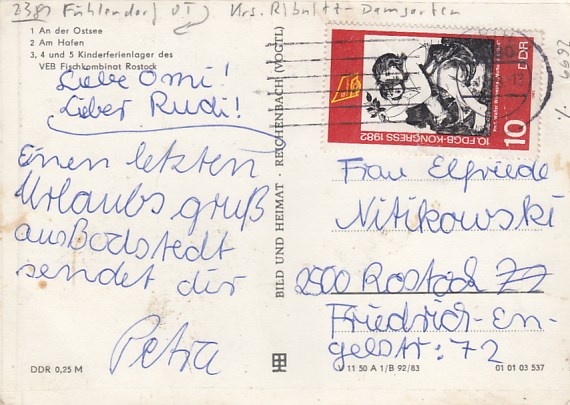 2381 Fuhlendorf OT Krs. Ribnitz-Damgarten
1 An der Ostsee
2 Am Hafen
3, 4 und 5 Kinderferienlager des
VEB Fischkombinat Rostock
Liebe Omi!
Lieber Rudi!
Einen letzten
Urlaubsgruß
aus Bodstedt
sendet dir
Petra
DDR 0,25 M
BILD UND HEIMAT · REICHENBACH (VOGTL)
DDR
10. FDGB-KONGRESS 1982
10
Frau Elfriede
Nitikowski
2500 Rostock 22
Friedrich-En-
gelstr: 72
V 11 50 A 1/B 92/83
01 01 03 537